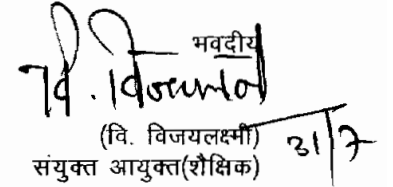 भवदीय
वि. विजयलक्ष्मी
(वि. विजयलक्ष्मी)
31/7
संयुक्त आयुक्त(शैक्षिक)